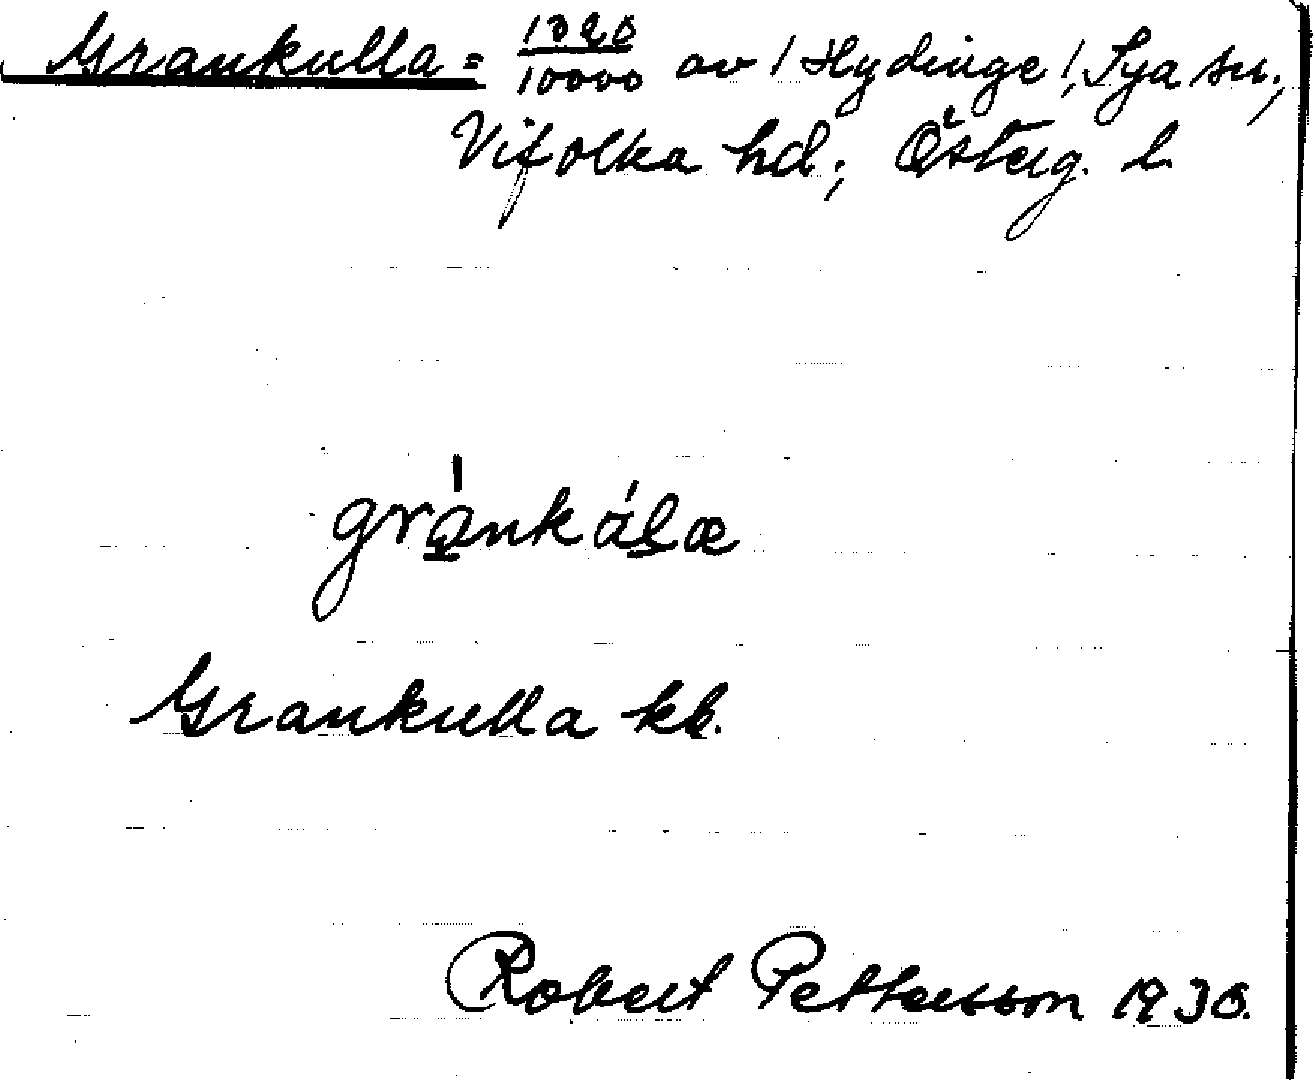 Grankulla = 1320/10000 av / Hydinge /, Sya sn.,
Vifolka hd; Österg. l
gránkálæ
Grankulla kb.
Robert Pettersson 1930.